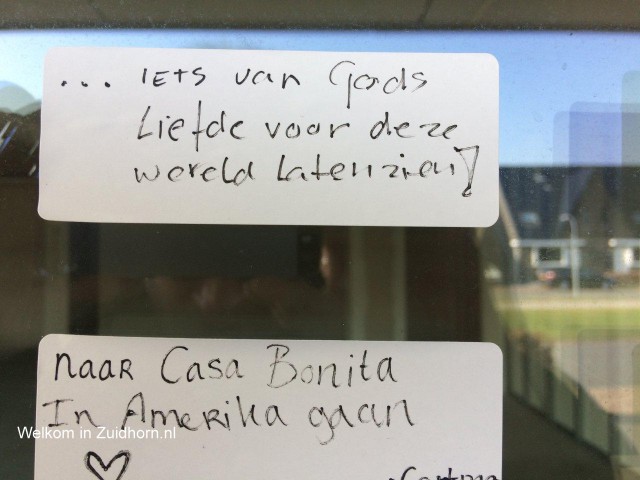 ... iets van Gods
Liefde voor deze
wereld laten zien!
naar Casa Bonita
In Amerika gaan
Welkom in Zuidhorn.nl